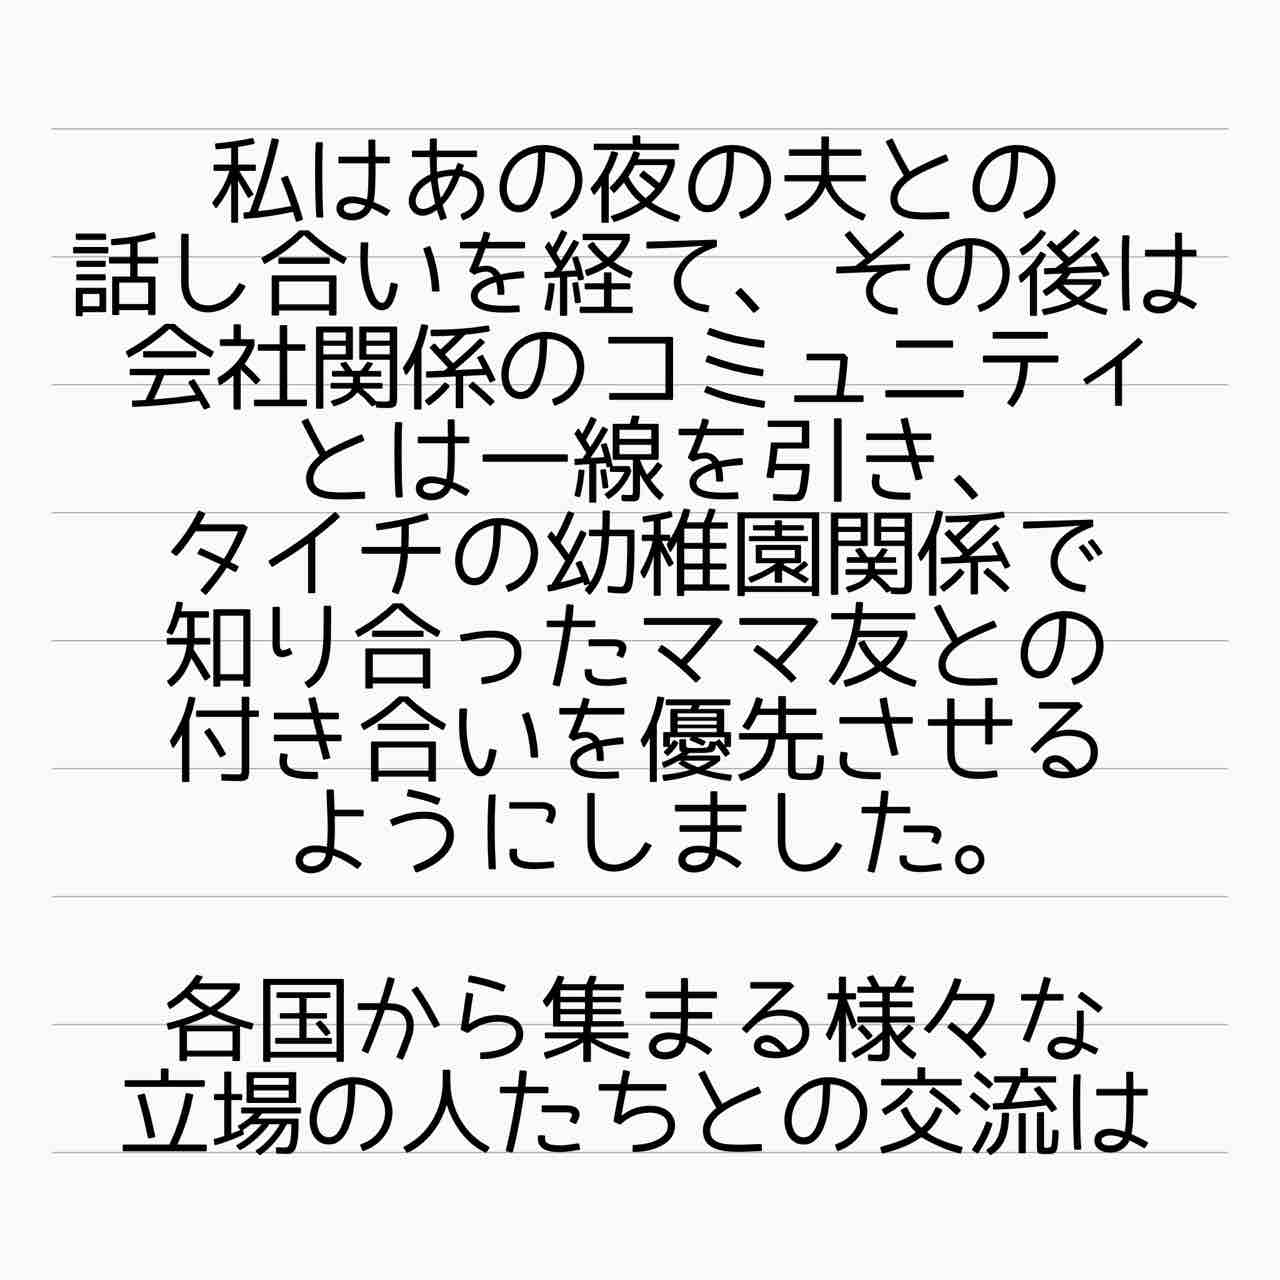 私はあの夜の夫との
話し合いを経て、その後は
会社関係のコミュニティ
とは一線を引き、
タイチの幼稚園関係で
知り合ったママ友との
付き合いを優先させる
ようにしました。
各国から集まる様々な
立場の人たちとの交流は